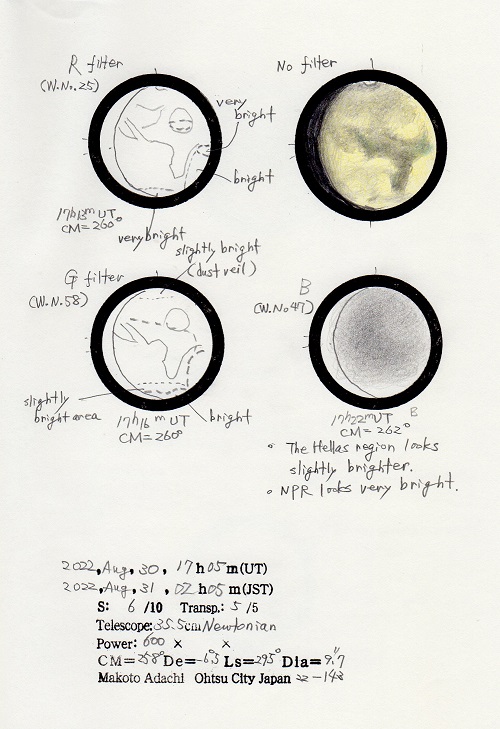 R filter
(W.No.25)
very
bright
bright
17h13m UT
CM=260°
very bright
No filter
slightly bright
(dust veil)
G filter
(W.N.58)
slightly
bright area
17h16m UT
CM=260°
bright
B
(W.No47)
17h22mUT B
CM=262°
• The Hellas region looks
slightly brighter.
• NPR looks very bright.
2022, Aug, 30, 17h05m(UT)
2022, Aug, 31, 02h05m(JST)
S: 6 /10 Transp.: 5 /5
Telescope: 35.5cm Newtonian
Power: 600 × ×
CM=258° De=-6.5° Ls=295° Dia=9.7"
Makoto Adachi Ohtsu City Japan 22-143